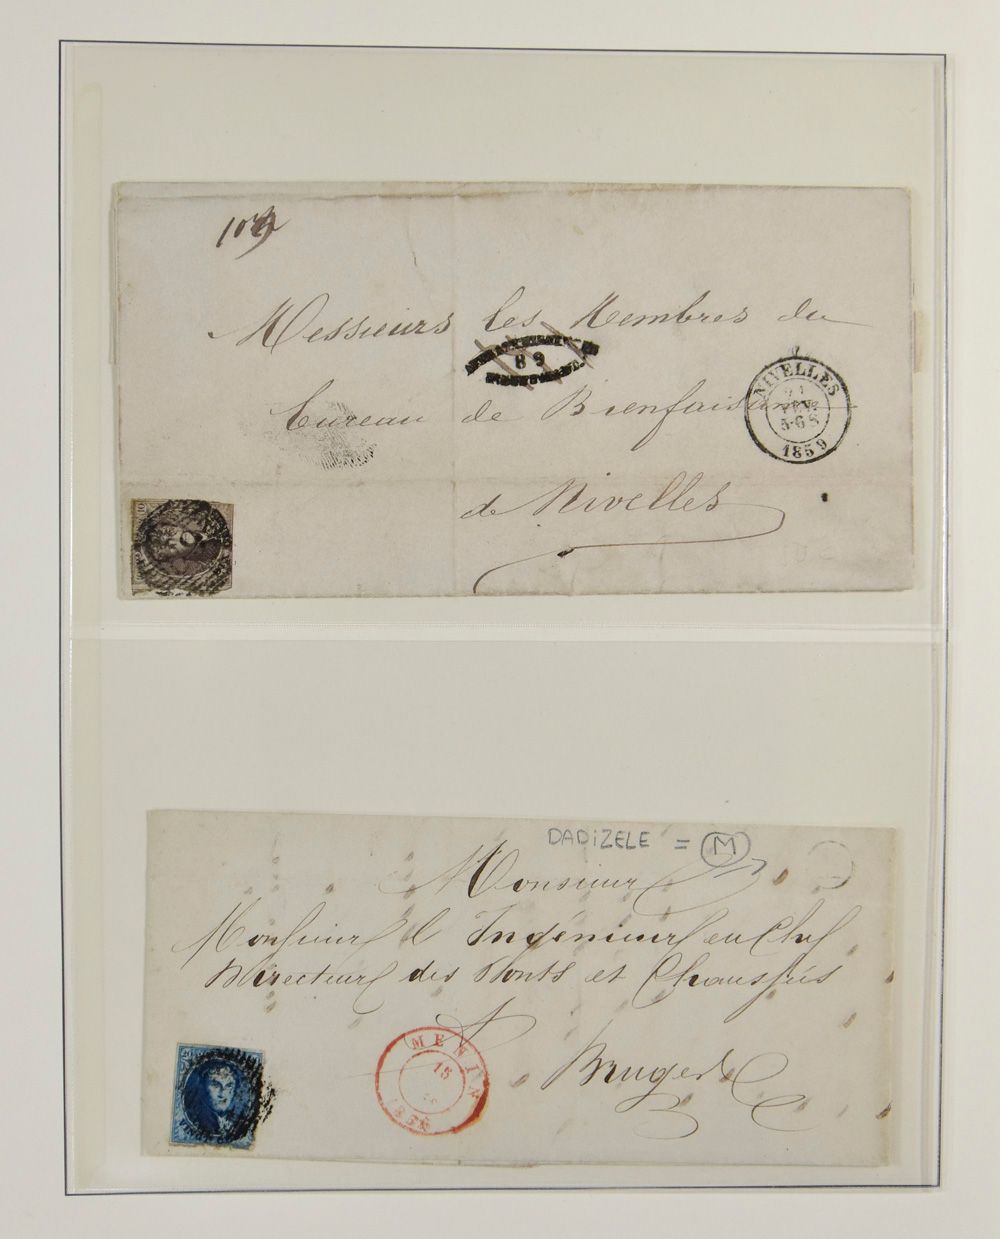 Messieurs les Membres du
89
bureau de Bienfaisance
NIVELLES
21
FEV.
5-6 S
1859
de Nivelles
10
DADiZELE = M
Monsieur
Monsieur l'Ingénieur en Chef
Directeur des Ponts et Chaussées
à
MENIN
15
1856
Bruges
20